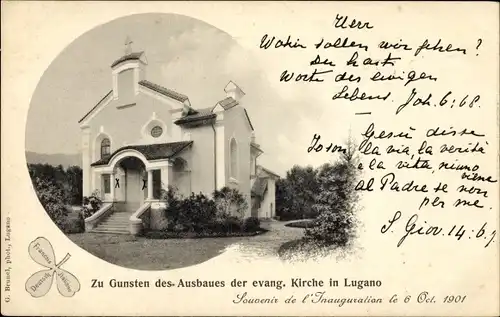 Herr
Wohin sollen wir gehen?
Du hast
Worte des ewigen
Lebens. Joh. 6:68.
Gesù disse
Io son la via, la verità
e la vita, niuno
viene
al Padre se non
per me.
S. Giov. 14:6.
G. Brunel, phot., Lugano
Français
Deutsch
Italiano
Zu Gunsten des Ausbaues der evang. Kirche in Lugano
Souvenir de l'Inauguration le 6 Oct. 1901